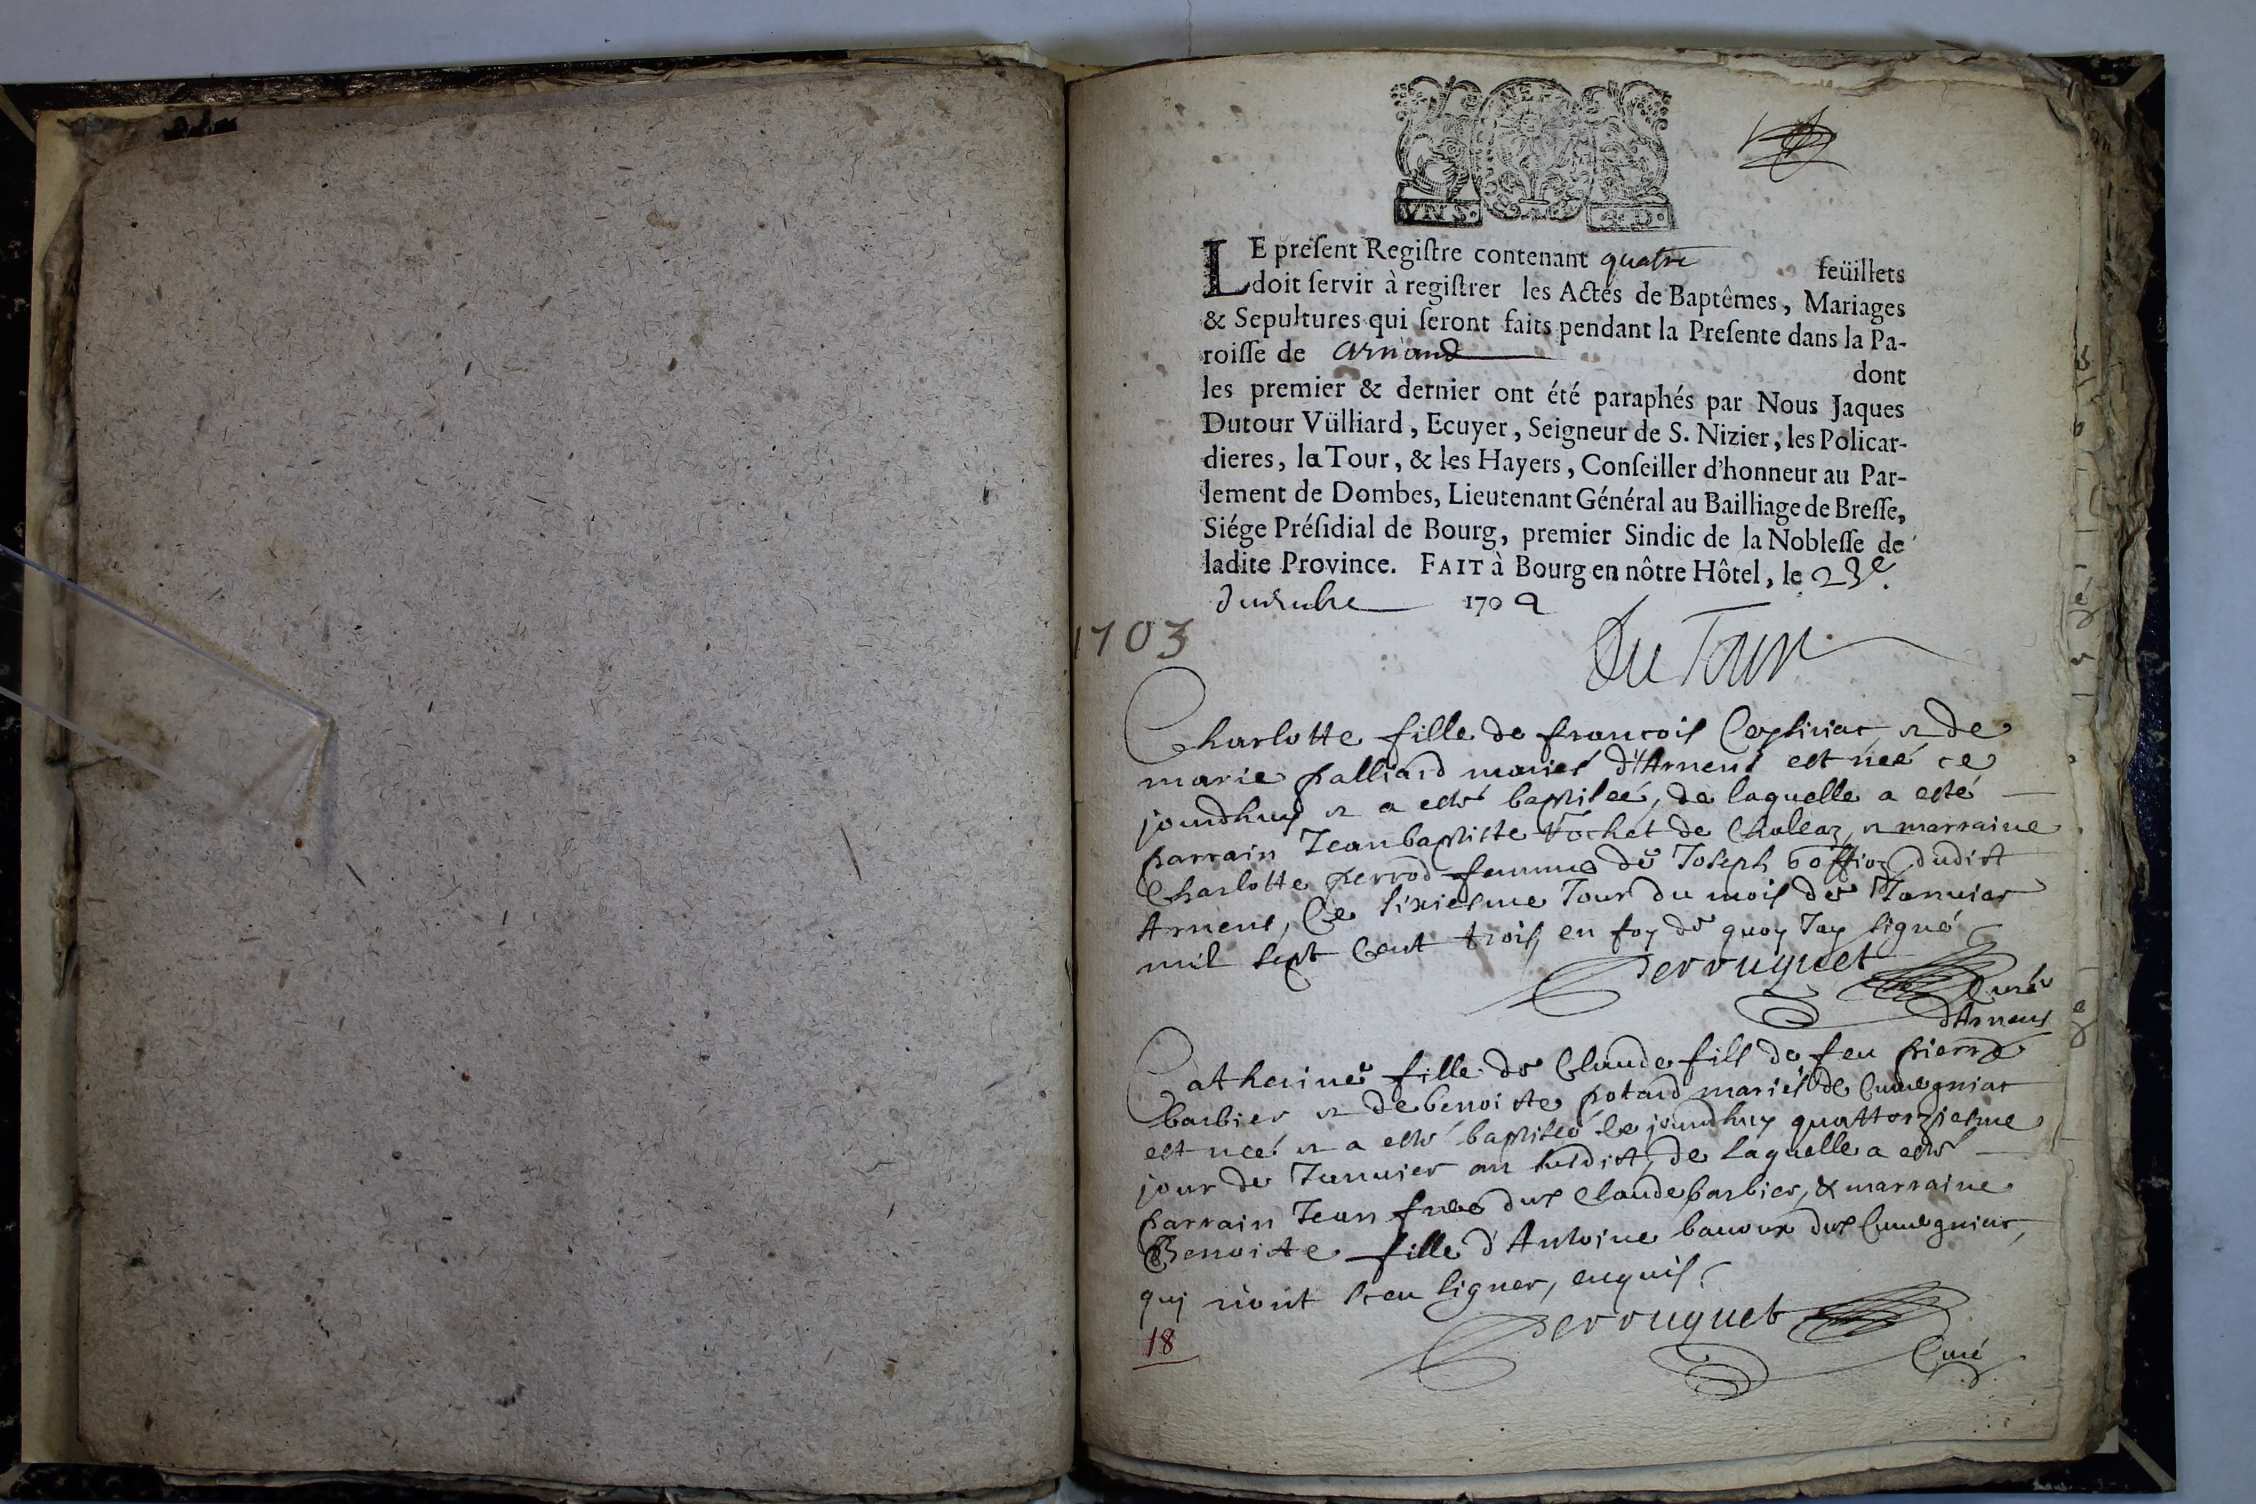 VN S.
4.D.
LE preſent Regiſtre contenant quatre feüillets
doit ſervir à regiſtrer les Actes de Baptêmes, Mariages
& Sepultures qui ſeront faits pendant la Preſente dans la Pa-
roiſſe de Arnand dont
les premier & dernier ont été paraphés par Nous Jaques
Dutour Vülliard, Ecuyer, Seigneur de S. Nizier, les Policar-
dieres, la Tour, & les Hayers, Conſeiller d'honneur au Par-
lement de Dombes, Lieutenant Général au Bailliage de Breſſe,
Siége Préſidial de Bourg, premier Sindic de la Nobleſſe de
ladite Province. FAIT à Bourg en nôtre Hôtel, le 23e.
170
1703
Du Tour
Charlotte fille de françois & de
marie palliard mariés d'Arnens est née ce
jourdhuy & a esté baptisée, de laquelle a esté
parrain Jean baptiste Vochet de Choleaz, & marraine
Charlotte perrod femme de Joseph dudict
Arnens, Ce sixiesme Jour du mois de Januier
mil sept Cent trois, en foy de quoy Jay signé
Perruquet
Curé
d'Arnens
Catherine fille de Claude fils de feu pierre
barbier & de benoiste potard mariés de Cuuegniat
est née & a esté baptisée ce jourdhuy quattorziesme
jour de Januier an susdict, de laquelle a esté
parrain Jean frere dud Claude barbier, & marraine
Benoiste fille d'Antoine dud Cuuegniat,
quj n'ont sceu signer, enquis.
Perruquet
Curé
18